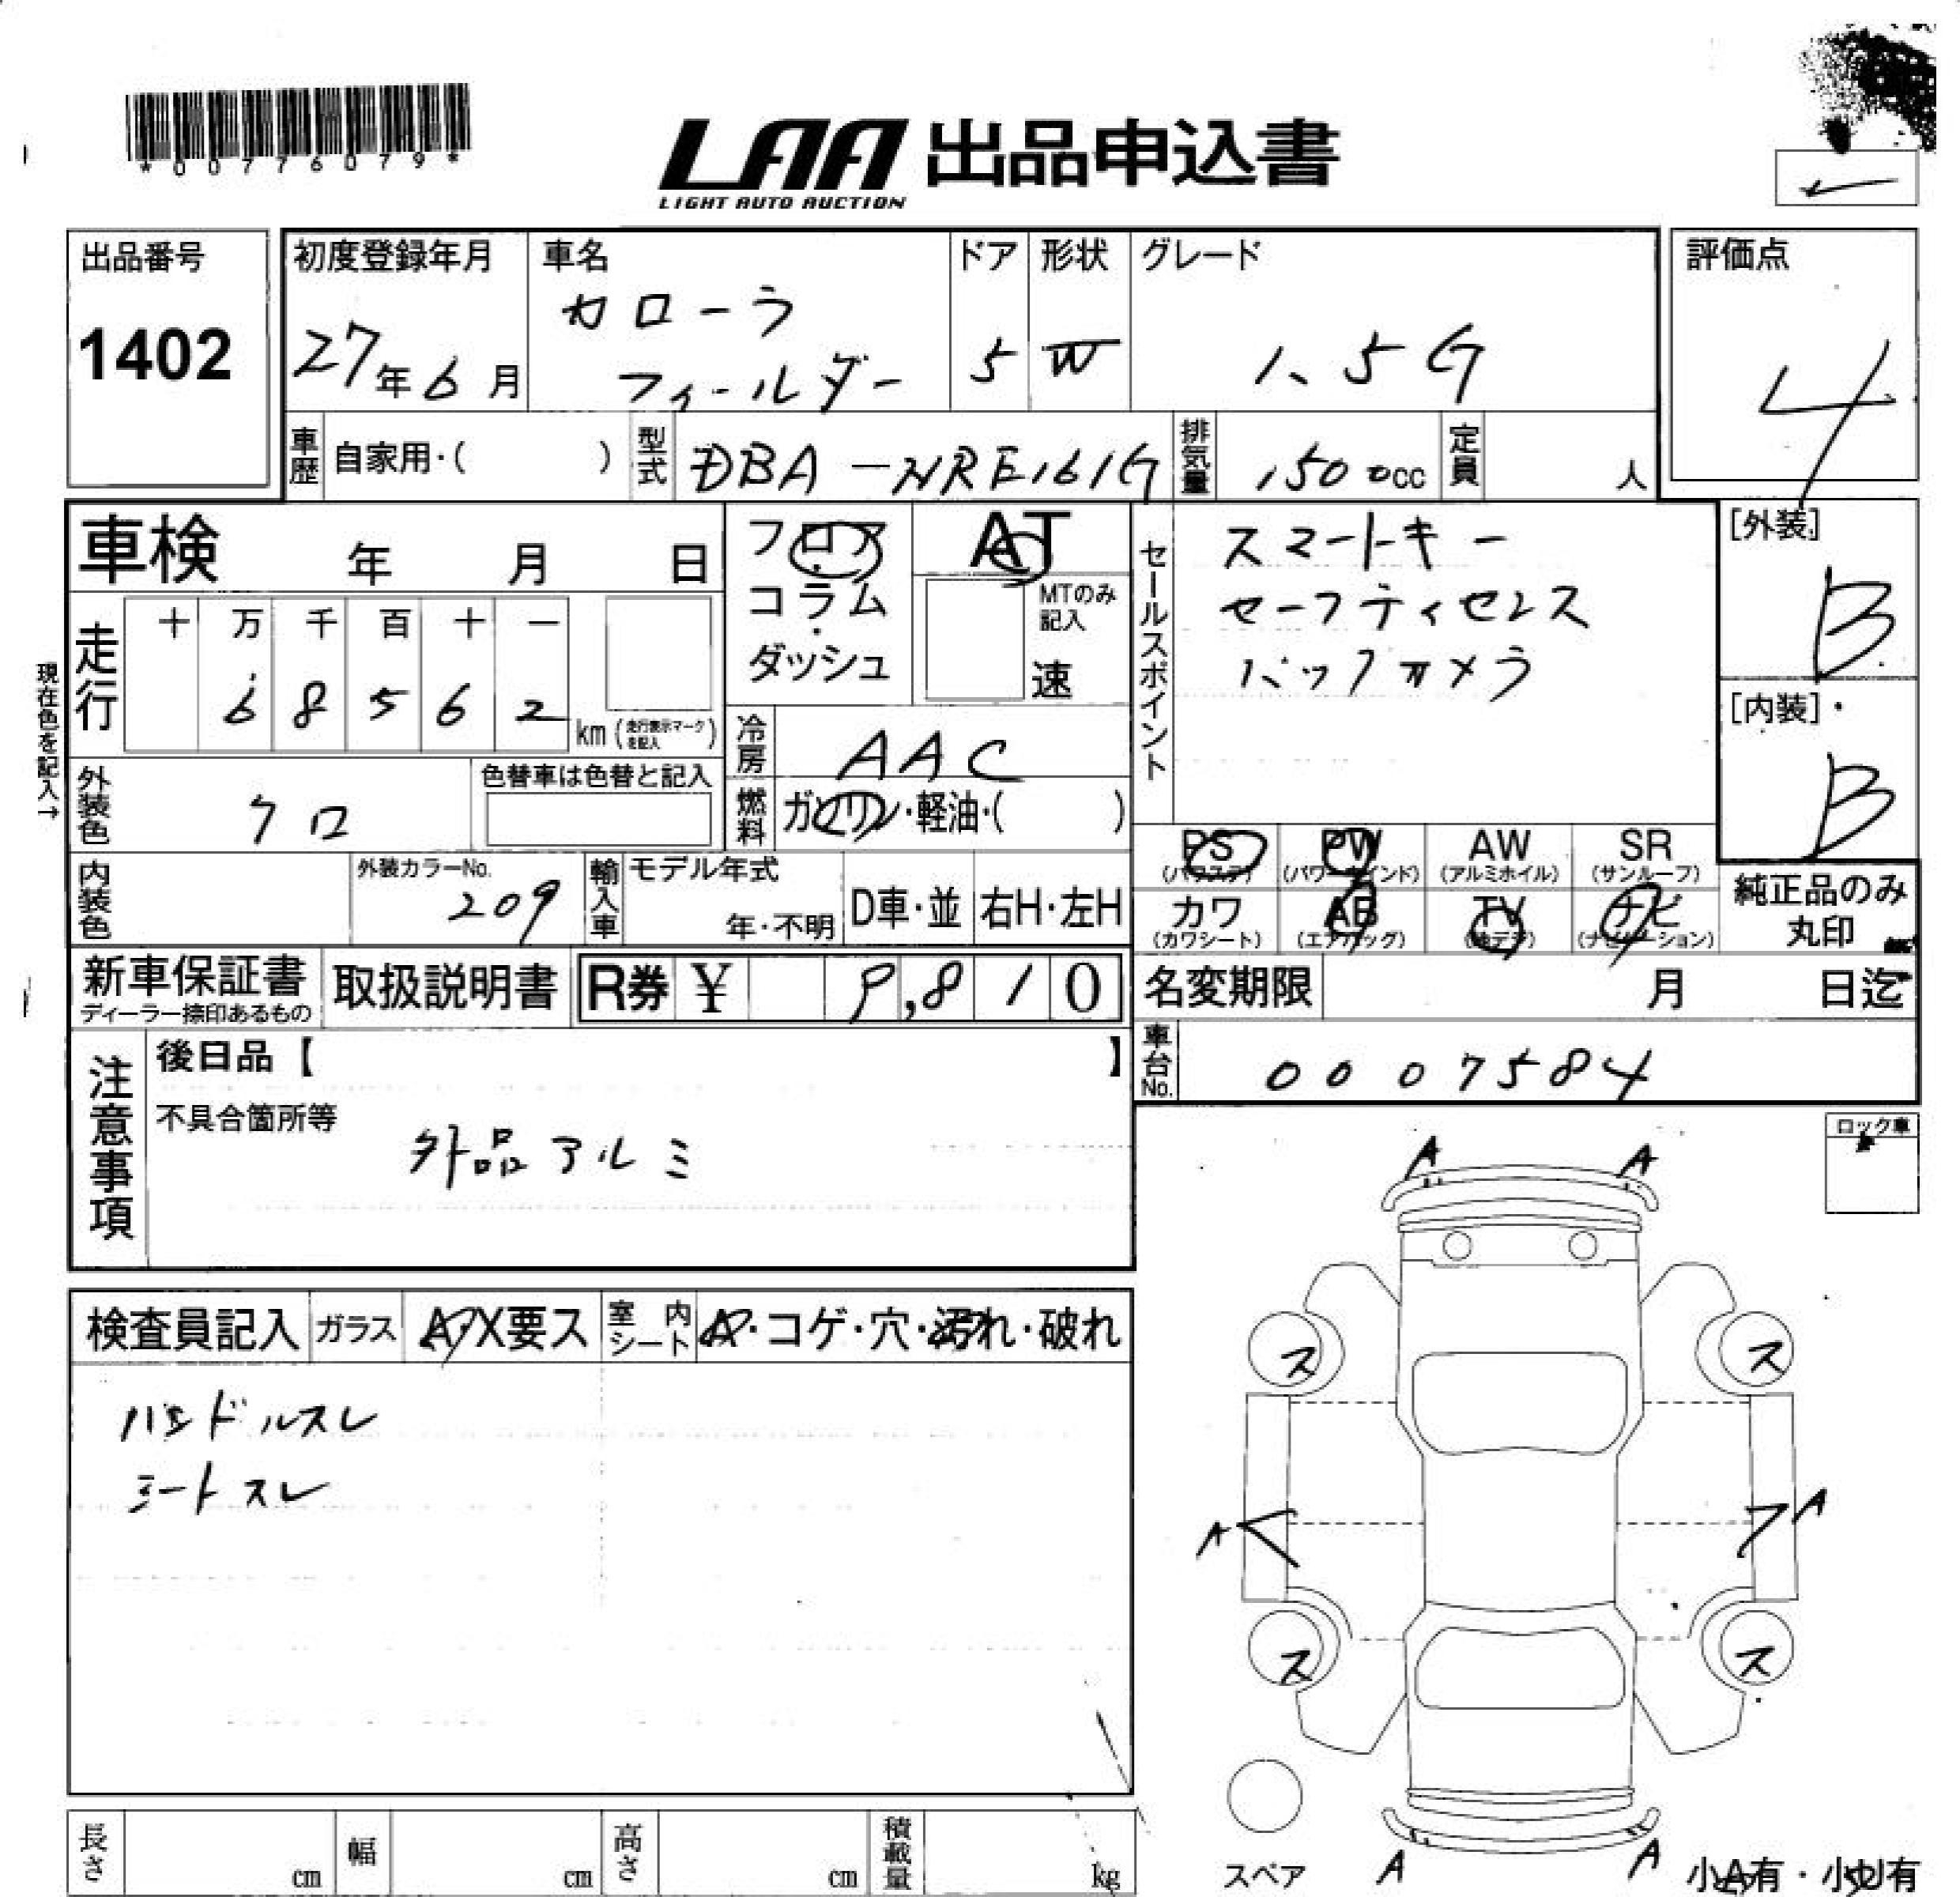 *00776079*
LAA 出品申込書
LIGHT AUTO AUCTION
出品番号
1402
初度登録年月
27年6月
車名
カローラ
フィールダー
ドア
5
形状
W
グレード
1.5G
評価点
4
車歴
自家用・( )
型式
DBA-NRE161G
排気量
1500cc
定員
人
車検 年 月 日
フロア
・
コラム
・
ダッシュ
AT
MTのみ
記入
速
セールスポイント
スマートキー
セーフティセンス
バックカメラ
[外装]
B
[内装]
B
現在色を記入→
走行
十 万 千 百 十 一
6 8 5 6 2
km (走行表示マークを記入)
冷房
AAC
外装色
クロ
色替車は色替と記入
燃料
ガソリン・軽油・( )
PS
(パワステ)
PW
(パワーウインド)
AW
(アルミホイル)
SR
(サンルーフ)
内装色
外装カラーNo.
209
輸入車
モデル年式
年・不明
D車・並
右H・左H
カワ
(カワシート)
AB
(エアバッグ)
TV
(地デジ)
ナビ
(ナビゲーション)
純正品のみ
丸印
新車保証書
ディーラー捺印あるもの
取扱説明書
R券 ¥ 9,810
名変期限 月 日迄
車台No.
0007584
注意事項
後日品【 】
不具合箇所等
外品アルミ
ロック車
検査員記入
ガラス
A・X要ス
室内シート
A・コゲ・穴・汚れ・破れ
ハンドルスレ
シートスレ
A A
ス ス
A A
ス ス
A A
スペア
小A有・小U有
長さ cm
幅 cm
高さ cm
積載量 kg